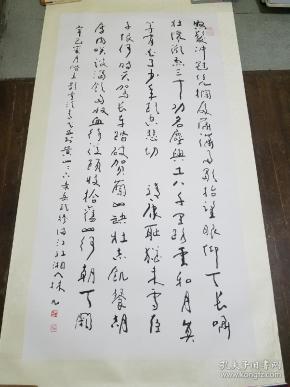 怒髮沖冠憑欄處瀟瀟雨歇抬望眼仰天長嘯
壯懷激烈三十功名塵與土八千里路雲和月莫
等閒白了少年頭空悲切 靖康恥猶未雪臣
子恨何時滅駕長車踏破賀蘭山缺壯志飢餐胡
虜肉笑談渴飲匈奴血待從頭收拾舊山河朝天闕
辛巳夏月 岳飛 滿江紅湘人林凡
孔夫子旧书网